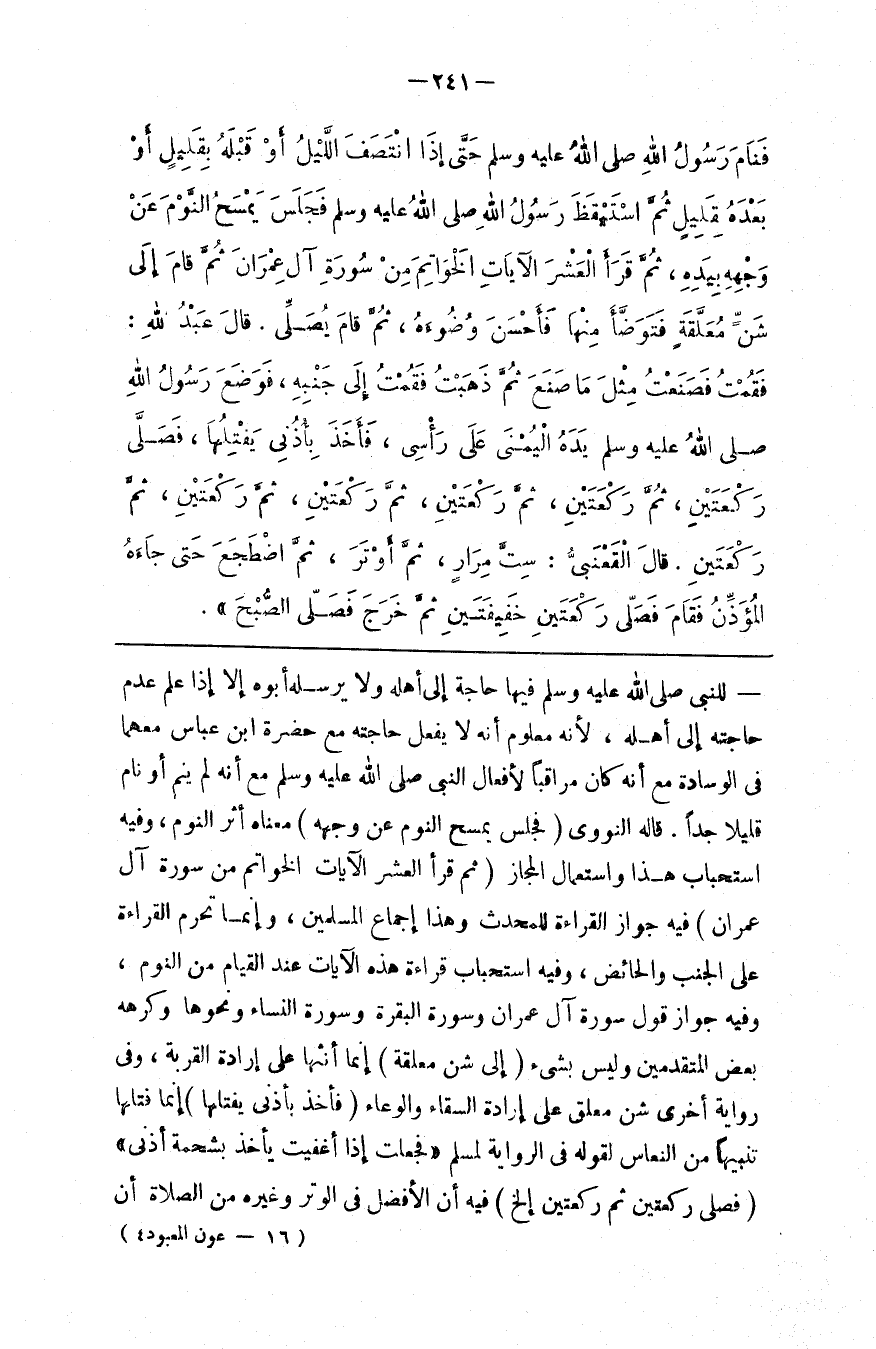 —٢٤١—
فَنَامَ رَسُولُ اللهِ صلى اللهُ عليه وسلم حَتَّى إِذَا انْتَصَفَ اللَّيْلُ أَوْ قَبْلَهُ بِقَلِيلٍ أَوْ
بَعْدَهُ بِقَلِيلٍ ثُمَّ اسْتَيْقَظَ رَسُولُ اللهِ صلى اللهُ عليه وسلم فَجَلَسَ يَمْسَحُ النَّوْمَ عَنْ
وَجْهِهِ بِيَدِهِ ، ثُمَّ قَرَأَ الْعَشْرَ الْآيَاتِ الْخَوَاتِمَ مِنْ سُورَةِ آلِ عِمْرَانَ ثُمَّ قَامَ إِلَى
شَنٍّ مُعَلَّقَةٍ فَتَوَضَّأَ مِنْهَا فَأَحْسَنَ وُضُوءَهُ ، ثُمَّ قَامَ يُصَلِّى . قالَ عَبْدُ للهِ :
فَقُمْتُ فَصَنَعْتُ مِثْلَ مَا صَنَعَ ثُمَّ ذَهَبْتُ فَقُمْتُ إِلَى جَنْبِهِ ، فَوَضَعَ رَسُولُ اللهِ
صلى اللهُ عليه وسلم يَدَهُ الْيُمْنَى عَلَى رَأْسِى ، فَأَخَذَ بِأُذُنِى يَفْتِلُهَا ، فَصَلَّى
رَكْعَتَيْنِ ، ثُمَّ رَكْعَتَيْنِ ، ثمَّ رَكْعَتَيْنِ ، ثمَّ رَكْعَتَيْنِ ، ثمَّ رَكْعَتَيْنِ ، ثمَّ
رَكْعَتَينِ . قالَ الْقَعْنَبىُّ : سِتَّ مِرَارٍ ، ثمَّ أَوْتَرَ ، ثمَّ اضْطَجَعَ حَتى جاءَهُ
المُؤَذِّنُ فَقَامَ فَصَلّى رَكْعَتَينِ خَفِيفَتَينِ ثمَّ خَرَجَ فَصَلّى الصُّبْحَ » .
— للنبى صلى الله عليه وسلم فيها حاجة إلى أهله ولا يرسله أبوه إلا إذا علم عدم
حاجته إلى أهله ، لأنه معلوم أنه لا يفعل حاجته مع حضرة ابن عباس معهما
فى الوسادة مع أنه كان مراقباً لأفعال النبى صلى الله عليه وسلم مع أنه لم ينم أو نام
قليلا جداً . قاله النووى ( فجلس يمسح النوم عن وجهه ) معناه أثر النوم ، وفيه
استحباب هذا واستعمال المجاز ( ثم قرأ العشر الآيات الخواتم من سورة آل
عمران ) فيه جواز القراءة للمحدث وهذا إجماع المسلمين ، وإنما تحرم القراءة
على الجنب والحائض ، وفيه استحباب قراءة هذه الآيات عند القيام من النوم ،
وفيه جواز قول سورة آل عمران وسورة البقرة وسورة النساء ونحوها وكرهه
بعض المتقدمين وليس بشىء ( إلى شن معلقة ) إنما أنثها على إرادة القربة ، وفى
رواية أخرى شن معلق على إرادة السقاء والوعاء ( فأخذ بأذنى يفتلها ) إنما فتلها
تنبيهاً من النعاس لقوله فى الرواية لمسلم «فجعلت إذا أغفيت يأخذ بشحمة أذنى»
( فصلى ركعتين ثم ركعتين إلخ ) فيه أن الأفضل فى الوتر وغيره من الصلاة أن
( ١٦ — عون المعبود ٤ )